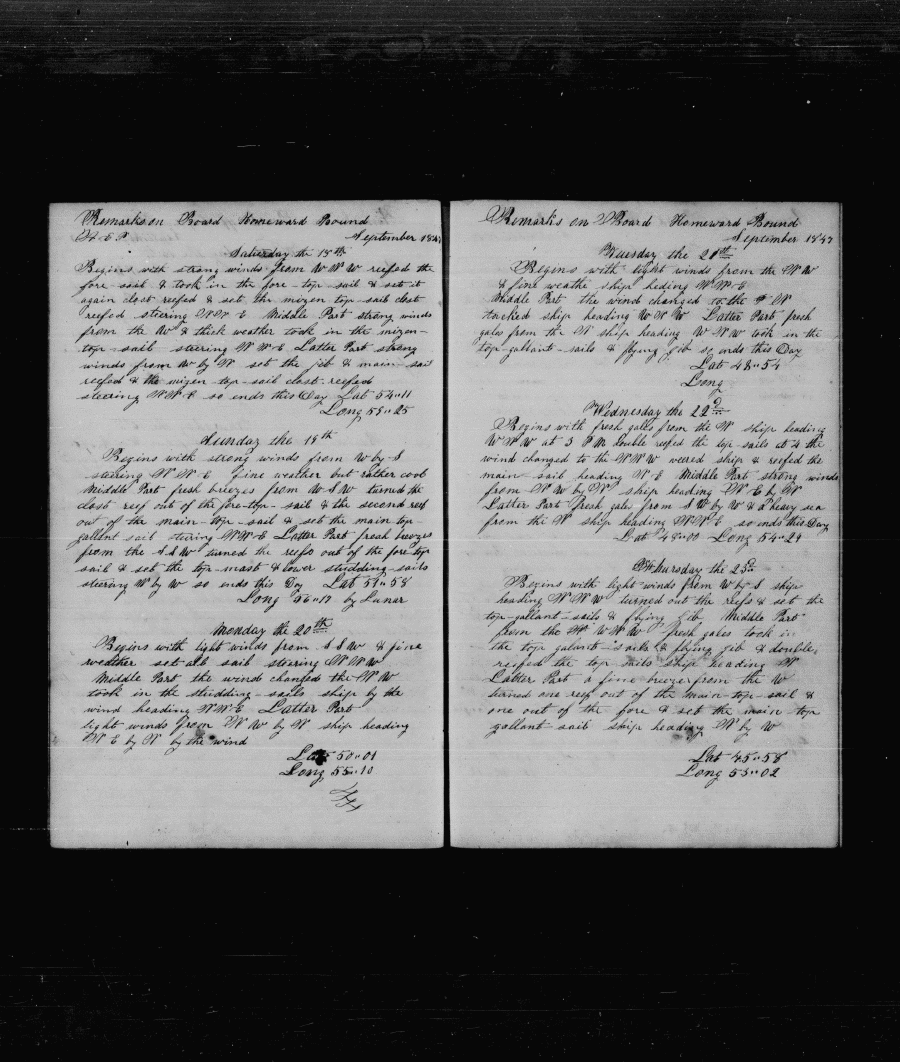 Remarks on Board Homeward Bound
September 1847
Saturday the 18th
Begins with strong winds from W N W reefed the
fore-sail & took in the fore-top-sail & set it
again close reefed & set the mizen top-sail close
reefed steering N N E Middle Part strong winds
from the W & thick weather took in the mizen-
top-sail steering N N E Latter Part strong
winds from W by N set the jib & main-sail
reefed & the mizen top-sail close-reefed
steering N N E so ends this Day Lat 54"11
Long 58"25
Sunday the 19th
Begins with strong winds from W by S
steering N N E fine weather but rather cool
Middle Part fresh breezes from W S W turned the
close reef out of the fore-top-sail & the second reef
out of the main-top-sail & set the main top-
gallant sail stering N N E Latter Part fresh breezes
from the S S W turned the reefs out of the fore top
sail & set the top-mast & lower studding-sails
steering N by W so ends this Day Lat 51"58
Long 56"17 by Lunar
Monday the 20th
Begins with light winds from S S W & fine
weather set all sail stearing N N W
Middle Part the winds changed the N W
took in the studding-sails ship by the
wind heading N N E Latter Part
light winds from N W by N ship heading
N E by N by the wind
Lat 50"01
Long 55"10
Remarks on Board Homeward Bound
September 1847
Tuesday the 21th
Begins with light winds from the N W
& fine weathe ship heding N N E
Middle Part the wind changed to the N
tacked ship heading W N W Latter Part fresh
gales from the N ship heading W N W took in the
top gallant-sails & flying jib so ends this Day
Lat 48"54
Long
Wednesday the 22d
Begins with fresh gales from the N ship heading
W N W at 3 P M double reefed the top-sails at 4 the
wind changed to the W N W weered ship & reefed the
main-sail heading N E Middle Part strong winds
from N W by N ship heading N E by N
Latter Part fresh gales from S W by W & a heavy sea
from the N ship heading N N E so ends this Day
Lat 48"00 Long 54"29
Thursday the 23d
Begins with light-winds from W by S ship
heading N N W turned out the reefs & set the
top-gallant-sails & flying jib Middle Part
from the W N W fresh gales took in
the top galant-sails & flying jib & double
reefed the top sails ship heading N
Latter Part a fine breeze from the W
turned one reef out of the main top-sail &
one out of the fore & set the main top
gallant-sail ship heading N by W
Lat 45"58
Long 53"02